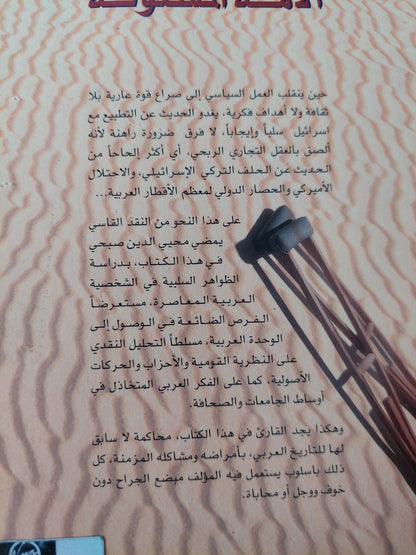 حين ينقلب العمل السياسي إلى صراع قوة عارية بلا
ثقافة ولا أهداف فكرية، يغدو الحديث عن التطبيع مع
اسرائيل سلباً وإيجاباً، لا فرق ضرورة راهنة لأنه
ألصق بالعقل التجاري الربحي، أي أكثر إلحاحاً من
الحديث عن الحلف التركي الإسرائيلي، والاحتلال
الأميركي والحصار الدولي لمعظم الأقطار العربية...
على هذا النحو من النقد القاسي
يمضي محيي الدين صبحي
في هذا الكتاب، بدراسة
الظواهر السلبية في الشخصية
العربية المعاصرة، مستعرضاً
الفرص الضائعة في الوصول إلى
الوحدة العربية، مسلطاً التحليل النقدي
على النظرية القومية والأحزاب والحركات
الأصولية، كما على الفكر العربي المتخاذل في
أوساط الجامعات والصحافة.
وهكذا يجد القارئ في هذا الكتاب، محاكمة لا سابق
لها للتاريخ العربي، بأمراضه ومشاكله المزمنة، كل
ذلك باسلوب يستعمل فيه المؤلف مبضع الجراح دون
خوف ووجل أو محاباة.